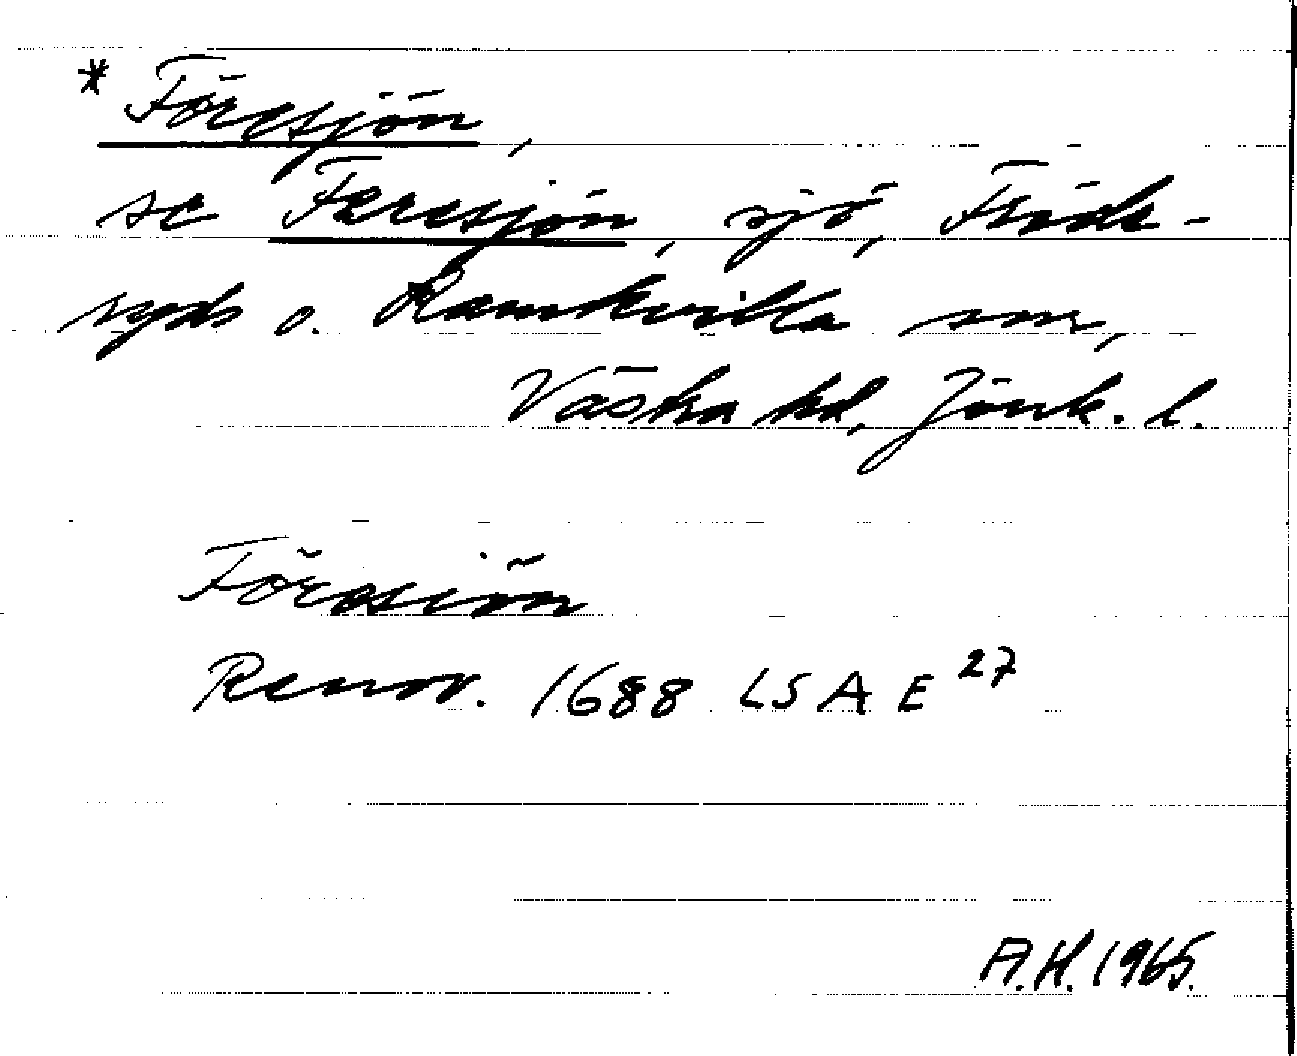 * Föresjön,
se Feresjön, sjö, Fröde-
ryds o. Ramkvilla snr,
Västra hd, Jönk. l.
Föresiön
Renov. 1688 LSA E 27
A.H. 1965.